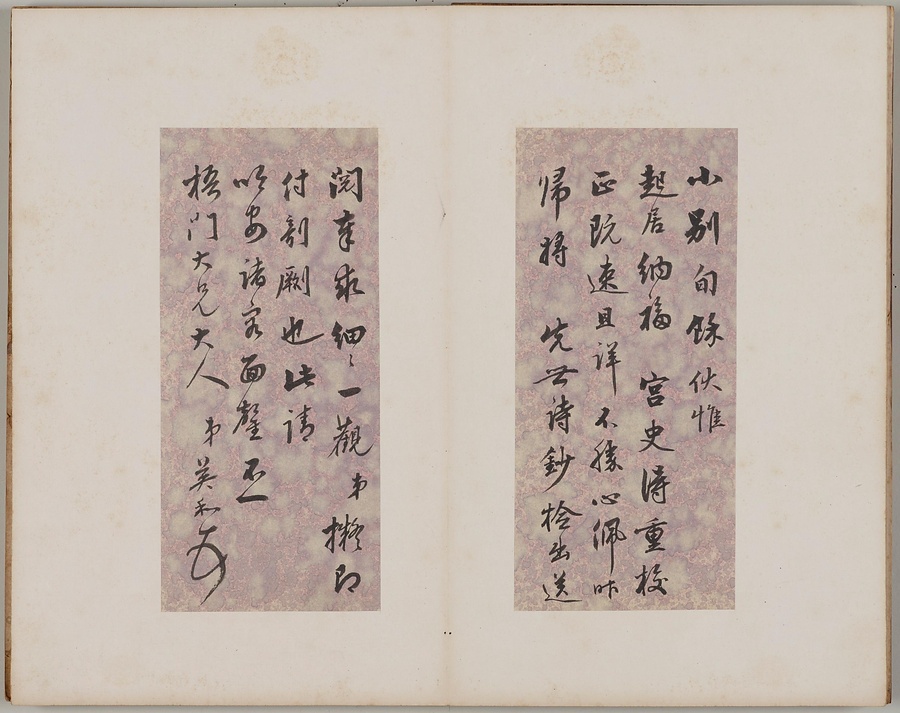 小別旬餘伏惟
起居納福 宮史得重校
正既速且詳不勝心佩昨
帰將 先世詩鈔撿出送
閱幸求細〻一觀弟擬即
付剞劂也此請
以安諸容面罄不一
梧門大兄大人 弟英和